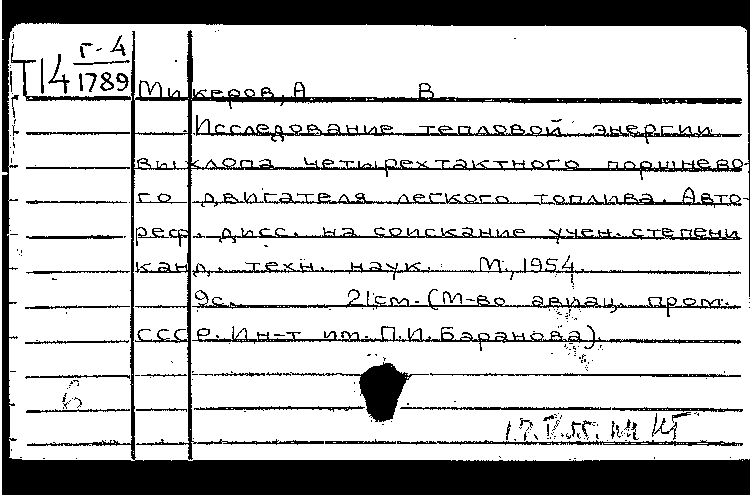 Г-4
П4 1789
Микеров, А В
Исследование тепловой энергии
выхлопа четырехтактного поршнево-
го двигателя легкого топлива. Авто-
реф. дисс. на соискание учен. степени
канд. техн. наук. М., 1954.
9с. 21см. (М-во авиац. пром.
СССР. Ин-т им. П.И. Баранова).
б
17.V.55.